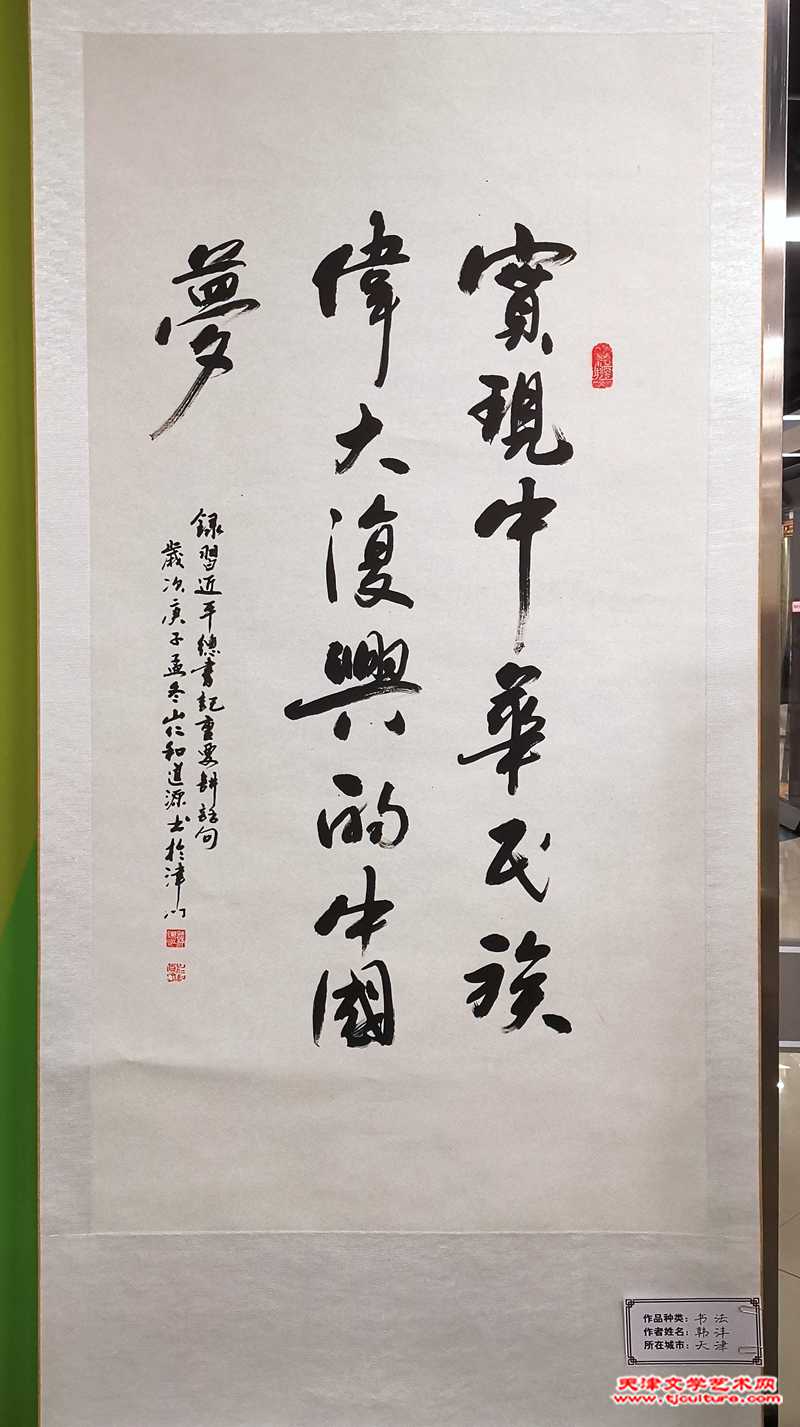 實現中華民族
偉大復興的中國
夢
錄習近平總書記重要講話句
歲次庚子孟冬山仁和道源书於津门
作品种类：书法
作者姓名：韩沣
所在城市：天津
天津文学艺术网
www.tjculture.com